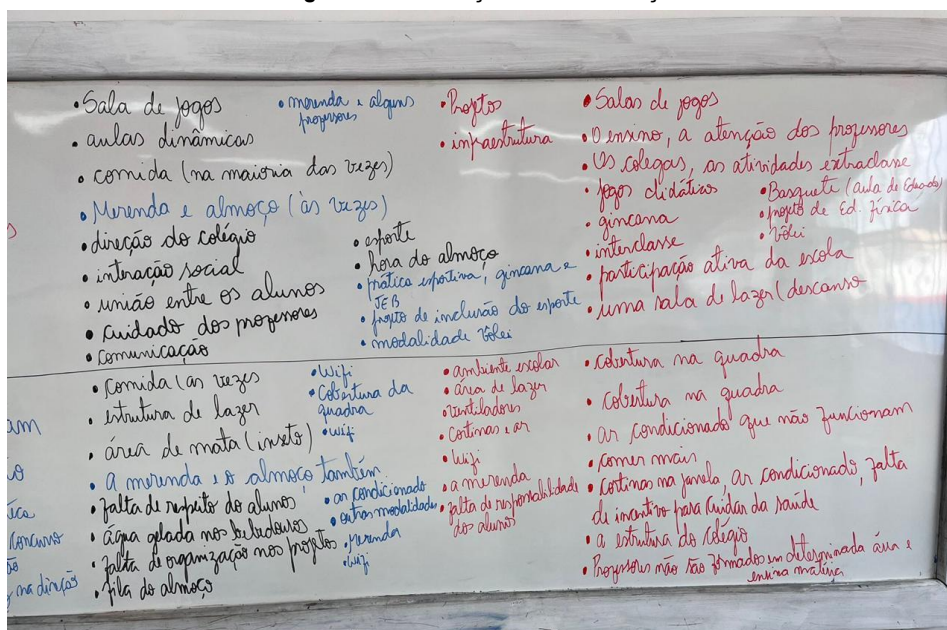 • Sala de jogos
• aulas dinâmicas
• comida (na maioria das vezes)
• Merenda e almoço (às vezes)
• direção do colégio
• interação social
• união entre os alunos
• cuidado dos professores
• comunicação
• merenda e alguns
professores
• esporte
• hora do almoço
• prática esportiva, gincana e
JEB
• projeto de inclusão do esporte
• modalidade vôlei
• Projetos
• infraestrutura
• Salas de jogos
• O ensino, a atenção dos professores
• Os colegas, as atividades extraclasse
• jogos didáticos
• gincana
• interclasse
• participação ativa da escola
• uma sala de lazer (descanso
• Basquete (aula de
• projeto de Ed. física
• Vôlei
am
Concurso
na direção
• comida (as vezes
• estrutura de lazer
• área de mata (inseto)
• a merenda e o almoço também
• falta de respeito do alunos
• água gelada nos bebedouros
• falta de organização nos projetos
• fila do almoço
• Wifi
• Cobertura da
quadra
• wifi
• ar condicionado
• outras modalidades
• Merenda
• Wifi
• ambiente escolar
• área de lazer
• ventiladores
• Cortinas e ar
• Wifi
• a merenda
• falta de responsabilidade
dos alunos
• cobertura na quadra
• cobertura na quadra
• ar condicionado que não funcionam
• comer mais
• cortinas na janela, ar condicionado, falta
de incentivo para cuidar da saúde
• a estrutura do colégio
• Professores não são formados em determinada área e
ensina matéria